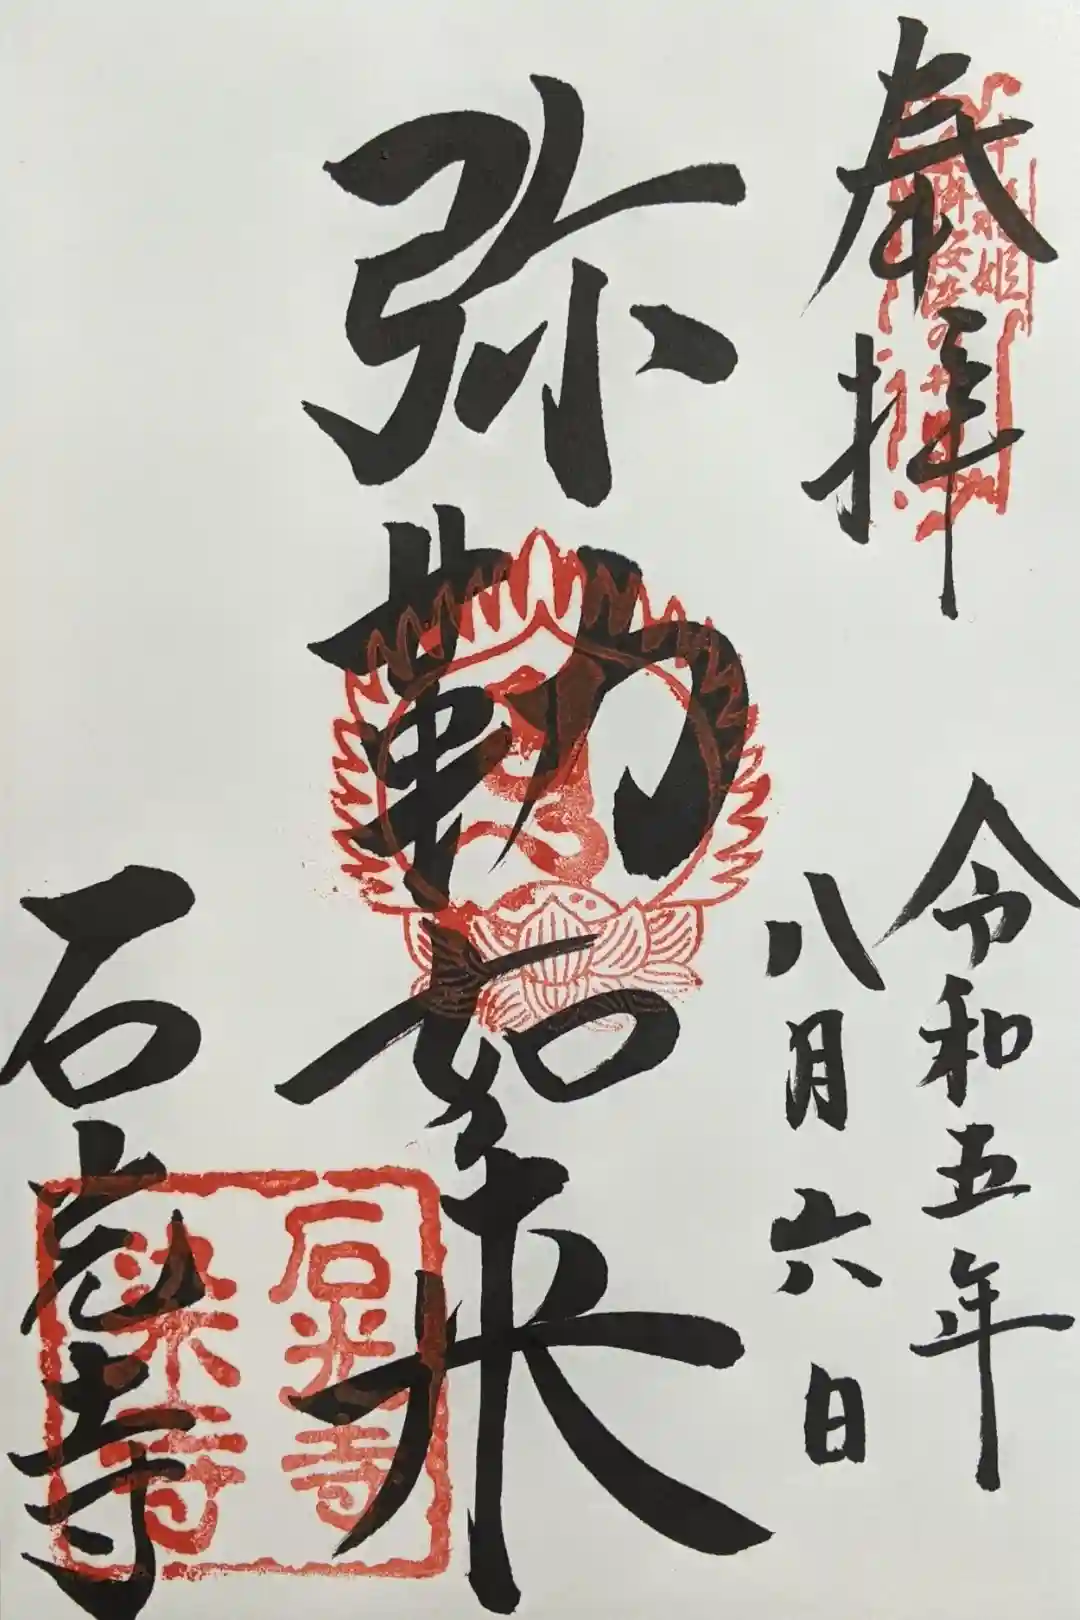 奉拝
中将姫
令和五年
八月六日
弥勒如来
石光寺
石光寺
染寺